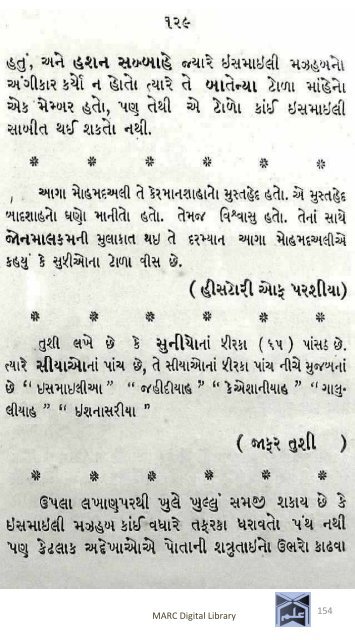 ૧૨૯
હતું, અને હશન સબ્બાહે જ્યારે ઇસમાઇલી મઝહબનો
અંગીકાર કર્યો ન હોતો ત્યારે તે બાતેન્યા ટોળા માંહેનો
એક મેમ્બર હતો, પણ તેથી એ ટોળો કાંઈ ઇસમાઇલી
સાબીત થઈ શકતો નથી.
* * * * * *
આગા મોહમદઅલી તે કેરમાનશાહાનો મુસ્તહેદ હતો. એ મુસ્તહેદ
બાદશાહનો ઘણો માનીતો હતો. તેમજ વિશ્વાસુ હતો. તેનાં સાથે
જોનમાલકમની મુલાકાત થઇ તે દરમ્યાન આગા મોહમદઅલીએ
કહ્યું કે સુરીઓના ટોળા વીસ છે.
( હીસટોરી ઓફ પરશીયા )
* * * * * *
તુશી લખે છે કે સુનીયોનાં શીરકા ( ૬૫ ) પાંસઠ છે.
ત્યારે સીયાઓનાં પાંચ છે, તે સીયાઓનાં શીરકા પાંચ નીચે મુજબનાં
છે “ ઇસમાઇલીઆ ” “ જહીદીયાહ ” “ કેએશાનીયાહ ” “ ગાલુ-
લીયાહ ” “ ઇશનાસરીયા ”
( જાફર તુશી )
* * * * * *
ઉપલા લખાણપરથી ખુલે ખુલ્લું સમજી શકાય છે કે
ઇસમાઇલી મઝહબ કાંઈ વધારે તફરકા ધરાવતો પંથ નથી
પણ કેટલાક અદેખાઓએ પોતાની શત્રુતાઈનો ઉભરો કાઢવા
MARC Digital Library
154